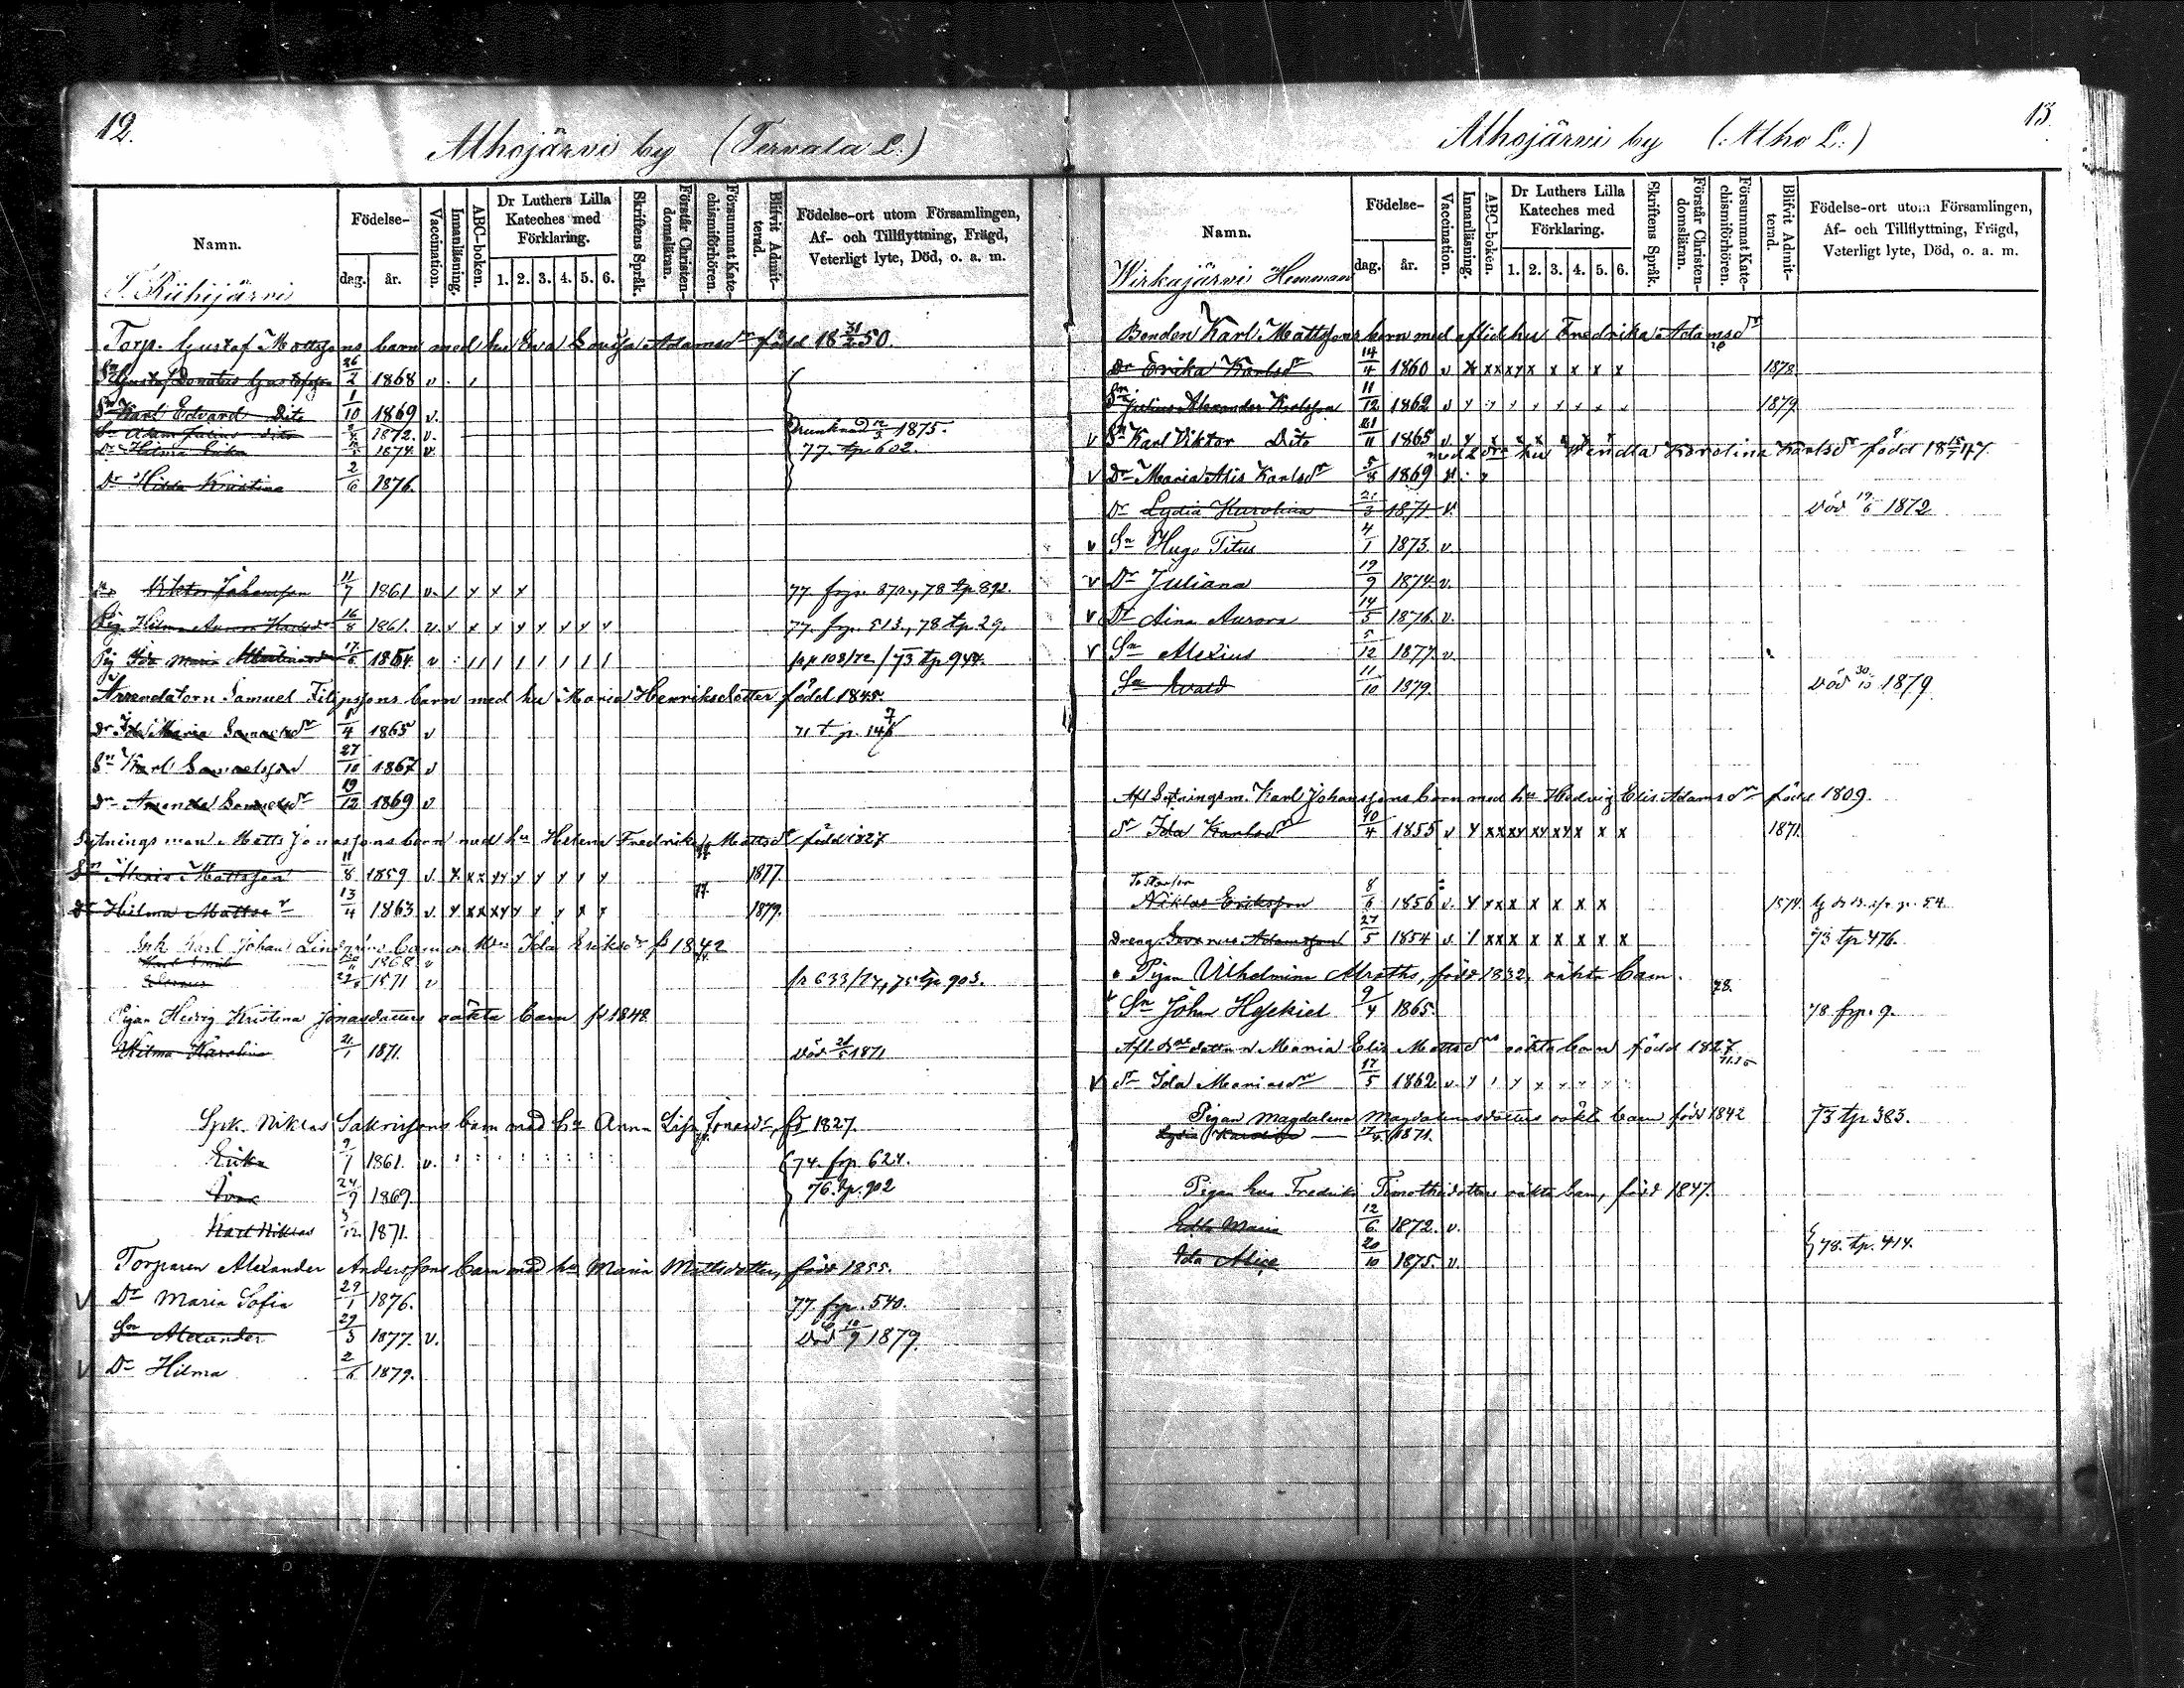 12.
Alhojärvi by (Tervala L.)
Namn.
Födelse-
dag.
år.
Vaccination.
Innanläsning.
ABC-boken.
Dr Luthers Lilla Kateches med Förklaring.
1. 2. 3. 4. 5. 6.
Skriftens Språk.
Förstår Christendomsläran.
Försummat Katechismiförhören.
Blifvit Admitterad.
Födelse-ort utom Församlingen, Af- och Tillflyttning, Frägd, Veterligt lyte, Död, o. a. m.
Riihijärvi
Torp. Gustaf Mattssons barn med hu Eva Lovisa Adamsdr född 18 31/2 50
Sn Gustaf Donatus Gustafsson 26/2 1868 v
Sn Karl Edvard Dito 1/10 1869 v.
Sn Adam Julius dito 1872. v. Drunknad 1875.
Dr Hilma 1874 v. 77 tp 602.
Dr Hilda Kristina 2/6 1876.
Viktor Johansson 11/7 1861 v. / x x x 77 frp. 870, 78 tp 892.
Pig Hilma Aurora Karlsdr 16/8 1861. v. x x x x x x x x 77. frp. 513, 78 tp 29.
Pig Ida Maria 17/6 1854. v 108/72 / 73 tp 944.
Arrendatorn Samuel Filipssons barn med hu Maria Henriksdotter född 1845.
Dr Ida Maria Samuelsdr 4 1865 v 71 t p. 147
Sn Karl Samuelsson 27/10 1867 v
Dr Amanda Samuelsdr 19/12 1869 v
Sytningsman Matts Jonassons barn med hu Helena Fredrika Mattsdr född 1827
Sn Alexis Mattsson 11/8 1859 v. x xx xx x x x x x 1877
Dr Hilma Mattsdr 13/4 1863 v. x xx xx x x x x x 77. 1879.
Karl Johan Lindgrens barn m. hu Ida Eriksdr f. 1842
Karl Emil 1868 v
1871 v fr 633/74, 75 tp 903.
Pigan Hedvig Kristina Jonasdotters oäkta barn fd 1848
Hilma Karolina 21/1 1871. Död 1871
Niklas Sakrissons barn med hu Anna Lisa Jonasdr, fd 1827.
Erika 9/1 1861. v. 74. frp 624.
Ivar 24/9 1869. 76. tp. 902
Karl Niklas 12 1871.
Torparen Alexander Anderssons barn med hu Maria Mattsdotter, född 1855.
v Dr Maria Sofia 29/1 1876. 77. frp. 540.
Sn Alexander 29/3 1877. v. Död 10/9 1879.
v Dr Hilma 2/6 1879.
13.
Alhojärvi by (Alho L.)
Namn.
Födelse-
dag.
år.
Vaccination.
Innanläsning.
ABC-boken.
Dr Luthers Lilla Kateches med Förklaring.
1. 2. 3. 4. 5. 6.
Skriftens Språk.
Förstår Christendomsläran.
Försummat Katechismiförhören.
Blifvit Admitterad.
Födelse-ort utom Församlingen, Af- och Tillflyttning, Frägd, Veterligt lyte, Död, o. a. m.
Wirkajärvi Hemman
Bonden Karl Mattssons barn med aflid hu Fredrika Adamsdr
Dr Erika Karlsdr 14/4 1860 v x xx xx x x x x x 1878.
Sn Julius Alexander Karlsson 11/12 1862 v 1879.
v Sn Karl Viktor Dito 21/11 1865 v
med 2dra hu Vendla Karolina Karlsdr född 18 15/7 47.
v Dr Maria Alis Karlsdr 5/8 1869 v.
Dr Lydia Karolina 21/3 1871 v. Död 19/6 1872
v Sn Hugo Titus 4/1 1873. v.
v Dr Juliana 19/9 1874. v.
v Dr Aina Aurora 14/5 1876. v.
v Sn Alexius 5/12 1877. v.
Sn Evald 11/10 1879. Död 30/10 1879
Afl Sytningsm. Karl Johanssons barn med hu Hedvig Elis. Adamsdr född 1809.
Dr Ida Karlsdr 10/4 1855 v x xx xx xx xx x x 1871.
Niklas Eriksson 8/6 1856 v. x xx x x x x x 1874. p. 54.
Dreng Adamsson 27/5 1854 v. / xx x x x x x x 73 tp 476.
Pigan Vilhelmina Alraths, född 1832, oäkta barn.
v Sn Johan Hesekiel 9/4 1865. 78. 78 frp. 9.
Afl. dottern Maria Elis. Mattsdrs oäkta barn född 1827
v Dr Ida Mariasdr 17/5 1862 v.
Pigan Magdalena Magdalenasdotters oäkt. barn född 1842 73 tp 383.
Lydia Karolina 1871.
Pigan Eva Fredrika Timotheidotters oäkta barn, född 1847.
Edla Maria 12/6 1872. v.
Ida Alice 20/10 1875. v. 78. tp. 414.